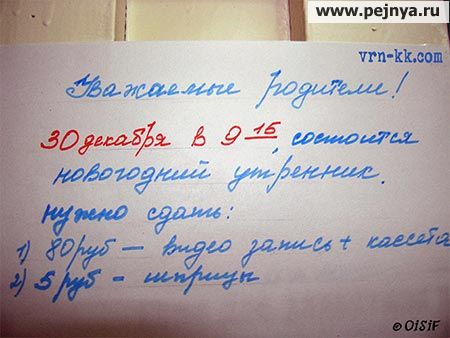 www.pejnya.ru
vrn-kk.com
Уважаемые родители!
30 декабря в 9 15, состоится
новогодний утренник.
нужно сдать:
1) 80 руб — видео запись + кассета
2) 5 руб - шприцы
© OiSiF